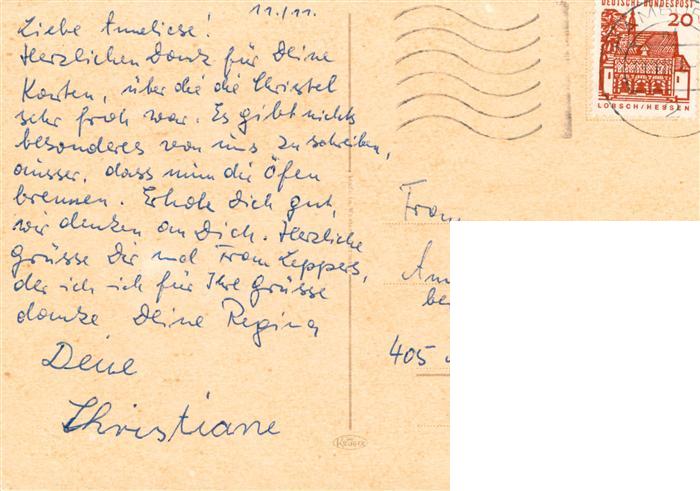 11./11.
Liebe Anneliese!
Herzlichen Dank für Deine
Karten, über die die Christel
sehr froh war. Es gibt nichts
besonderes von uns zu schreiben,
ausser, dass nun die Öfen
brennen. Erhole Dich gut,
wir denken an Dich. Herzliche
Grüsse Dir und Frau Leppers,
der ich ich für Ihre Grüsse
danke Deine Regina
Deine
Christiane
DEUTSCHE BUNDESPOST
20
LORSCH/HESSEN
Frau
An
be
405
Krüger